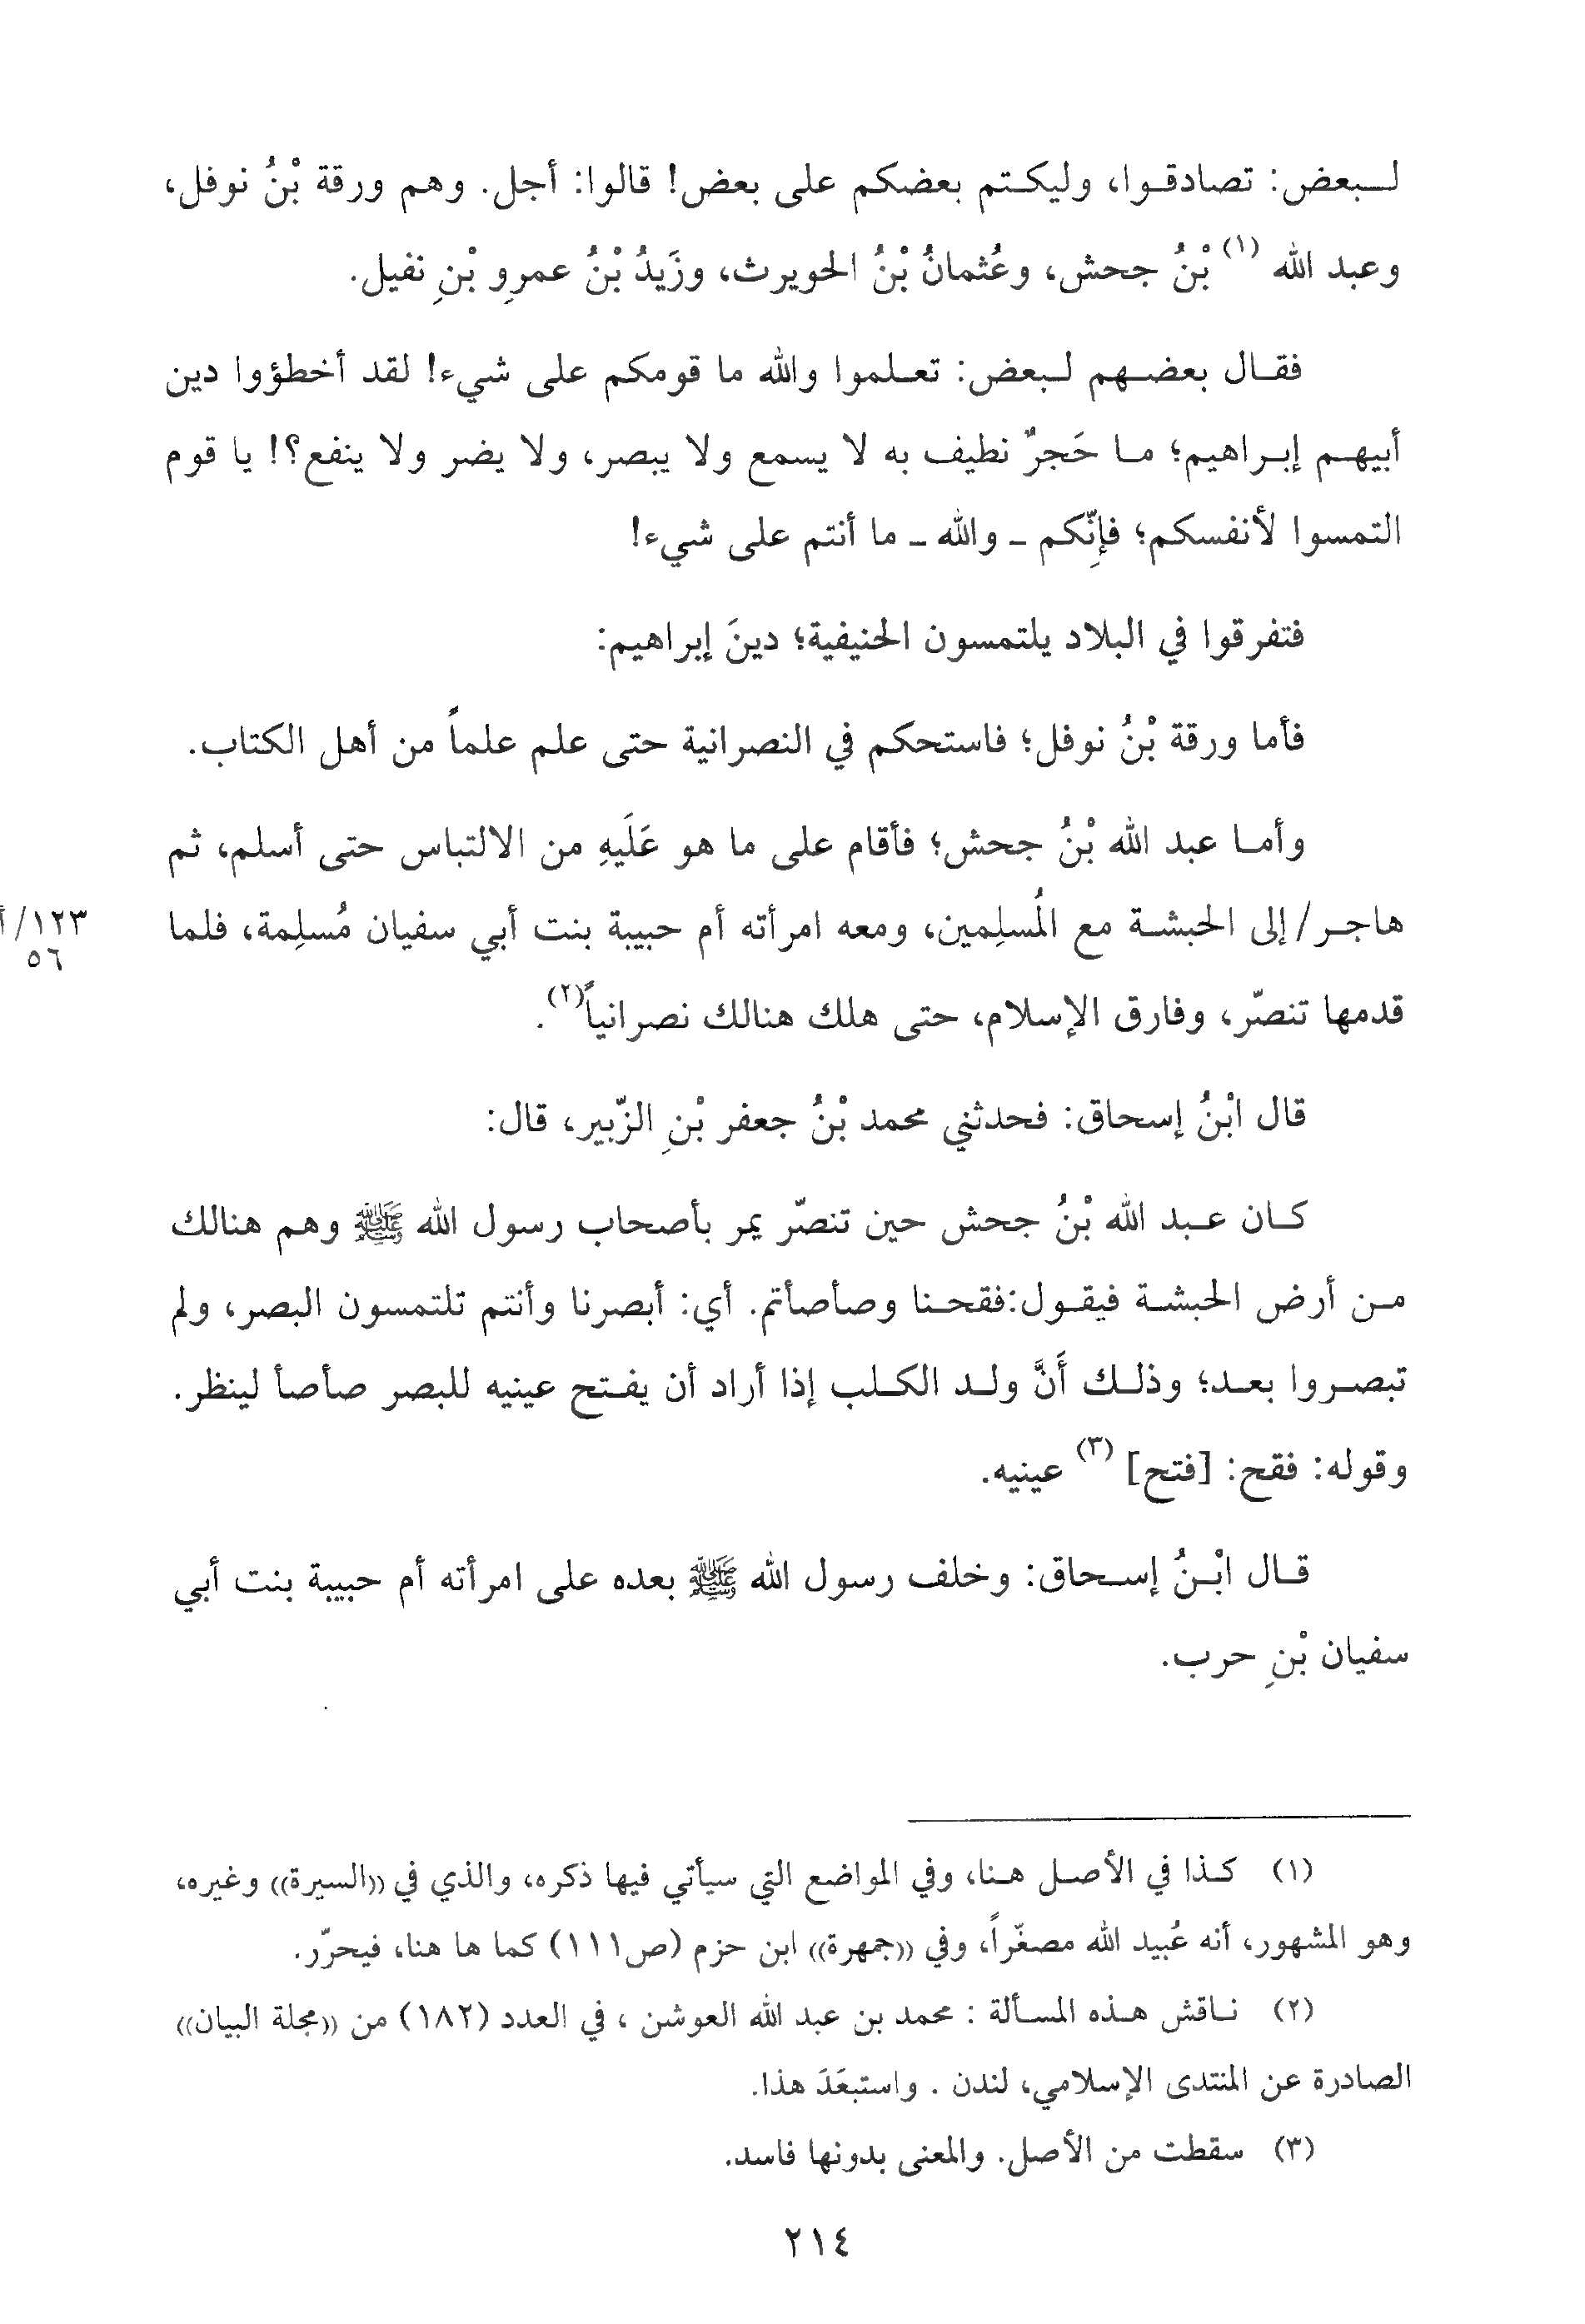 لـبعض: تصادقـوا، وليكـتم بعضكم على بعض! قالوا: أجل. وهم ورقة بْنُ نوفل،
وعبد الله (١) بْنُ جحش، وعُثمانُ بْنُ الحويرث، وزَيدُ بْنُ عمرِو بْنِ نفيل.
فقـال بعضـهم لـبعض: تعـلموا والله ما قومكم على شيء! لقد أخطؤوا دين
أبيهـم إبـراهيم؛ مـا حَجرٌ نطيف به لا يسمع ولا يبصر، ولا يضر ولا ينفع؟! يا قوم
التمسوا لأنفسكم؛ فإِنّكم ـ والله ـ ما أنتم على شيء!
فتفرقوا في البلاد يلتمسون الحنيفية؛ دينَ إبراهيم:
فأما ورقة بْنُ نوفل؛ فاستحكم في النصرانية حتى علم علماً من أهل الكتاب.
وأمـا عبد الله بْنُ جحش؛ فأقام على ما هو عَلَيهِ من الالتباس حتى أسلم، ثم
هاجـر/ إلى الحبشـة مع المُسلِمين، ومعه امرأته أم حبيبة بنت أبي سفيان مُسلِمة، فلما
١٢٣/أ
٥٦
قدمها تنصّر، وفارق الإسلام، حتى هلك هنالك نصرانياً(٢).
قال ابْنُ إسحاق: فحدثني محمد بْنُ جعفر بْنِ الزّبير، قال:
كـان عـبد الله بْنُ جحش حين تنصّر يمر بأصحاب رسول الله ﷺ وهم هنالك
مـن أرض الحبشـة فيقـول:فقحـنا وصأصأتم. أي: أبصرنا وأنتم تلتمسون البصر، ولم
تبصـروا بعـد؛ وذلـك أَنَّ ولـد الكـلب إذا أراد أن يفـتح عينيه للبصر صأصأ لينظر.
وقوله: فقح: [فتح] (٣) عينيه.
قـال ابْـنُ إسـحاق: وخلف رسول الله ﷺ بعده على امرأته أم حبيبة بنت أبي
سفيان بْنِ حرب.
(١) كـذا في الأصـل هـنا، وفي المواضع التي سيأتي فيها ذكره، والذي في ((السيرة)) وغيره،
وهو المشهور، أنه عُبيد الله مصغّراً، وفي ((جمهرة)) ابن حزم (ص١١١) كما ها هنا، فيحرّر.
(٢) نـاقش هـذه المسـألة : محمد بن عبد الله العوشن ، في العدد (١٨٢) من ((مجلة البيان))
الصادرة عن المنتدى الإسلامي، لندن . واستبعَدَ هذا.
(٣) سقطت من الأصل. والمعنى بدونها فاسد.
٢١٤